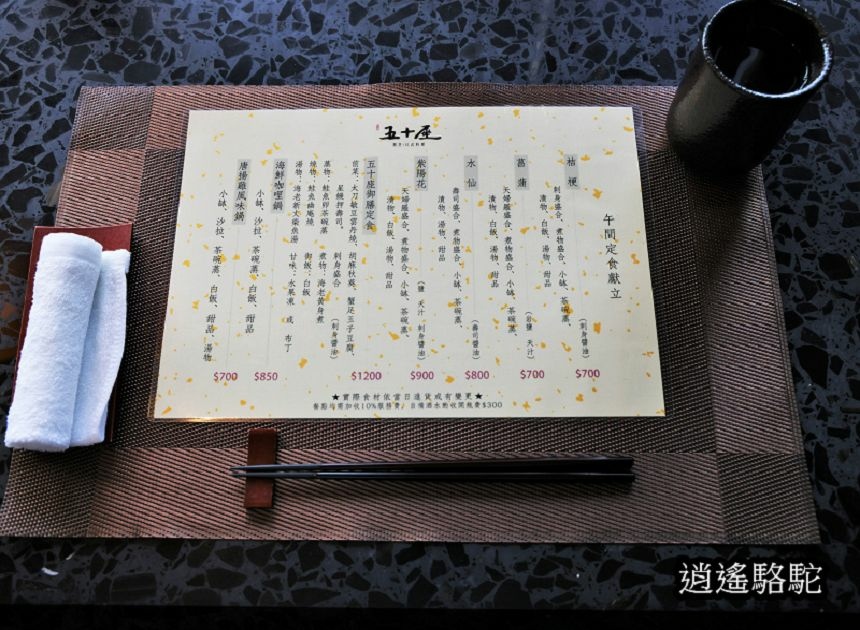 五十座
午間定食献立
桔梗
刺身盛合、煮物盛合、小缽、茶碗蒸、
漬物、白飯、湯物、甜品
(刺身醬油)
$700
菖蒲
天婦羅盛合、煮物盛合、小缽、茶碗蒸、
漬物、白飯、湯物、甜品
(岩鹽 天汁)
$700
水仙
壽司盛合、煮物盛合、小缽、茶碗蒸、
漬物、湯物、甜品
(壽司醬油)
$800
紫陽花
天婦羅盛合、煮物盛合、小缽、茶碗蒸、
漬物、白飯、湯物、甜品
天汁 刺身醬油)
$900
五十座御膳定食
胡麻秋葵、蟹足玉子豆腐、
刺身盛合 (刺身醬油)
蒸物：鮭魚卵茶碗蒸
煮物：海老黃身煮
燒物：鮭魚幽庵燒
御飯：白飯
湯物：海老新丈柴魚湯
甘味：水果凍 或 布丁
$1200
海鮮咖哩鍋
小缽、沙拉、茶碗蒸、白飯、甜品
$850
唐揚雞風味鍋
小缽、沙拉、茶碗蒸、白飯、甜品、湯物
$700
★實際食材依當日進貨或有變更★
餐點均需加收10%服務費，自備酒水酌收開瓶費$300
逍遙駱駝